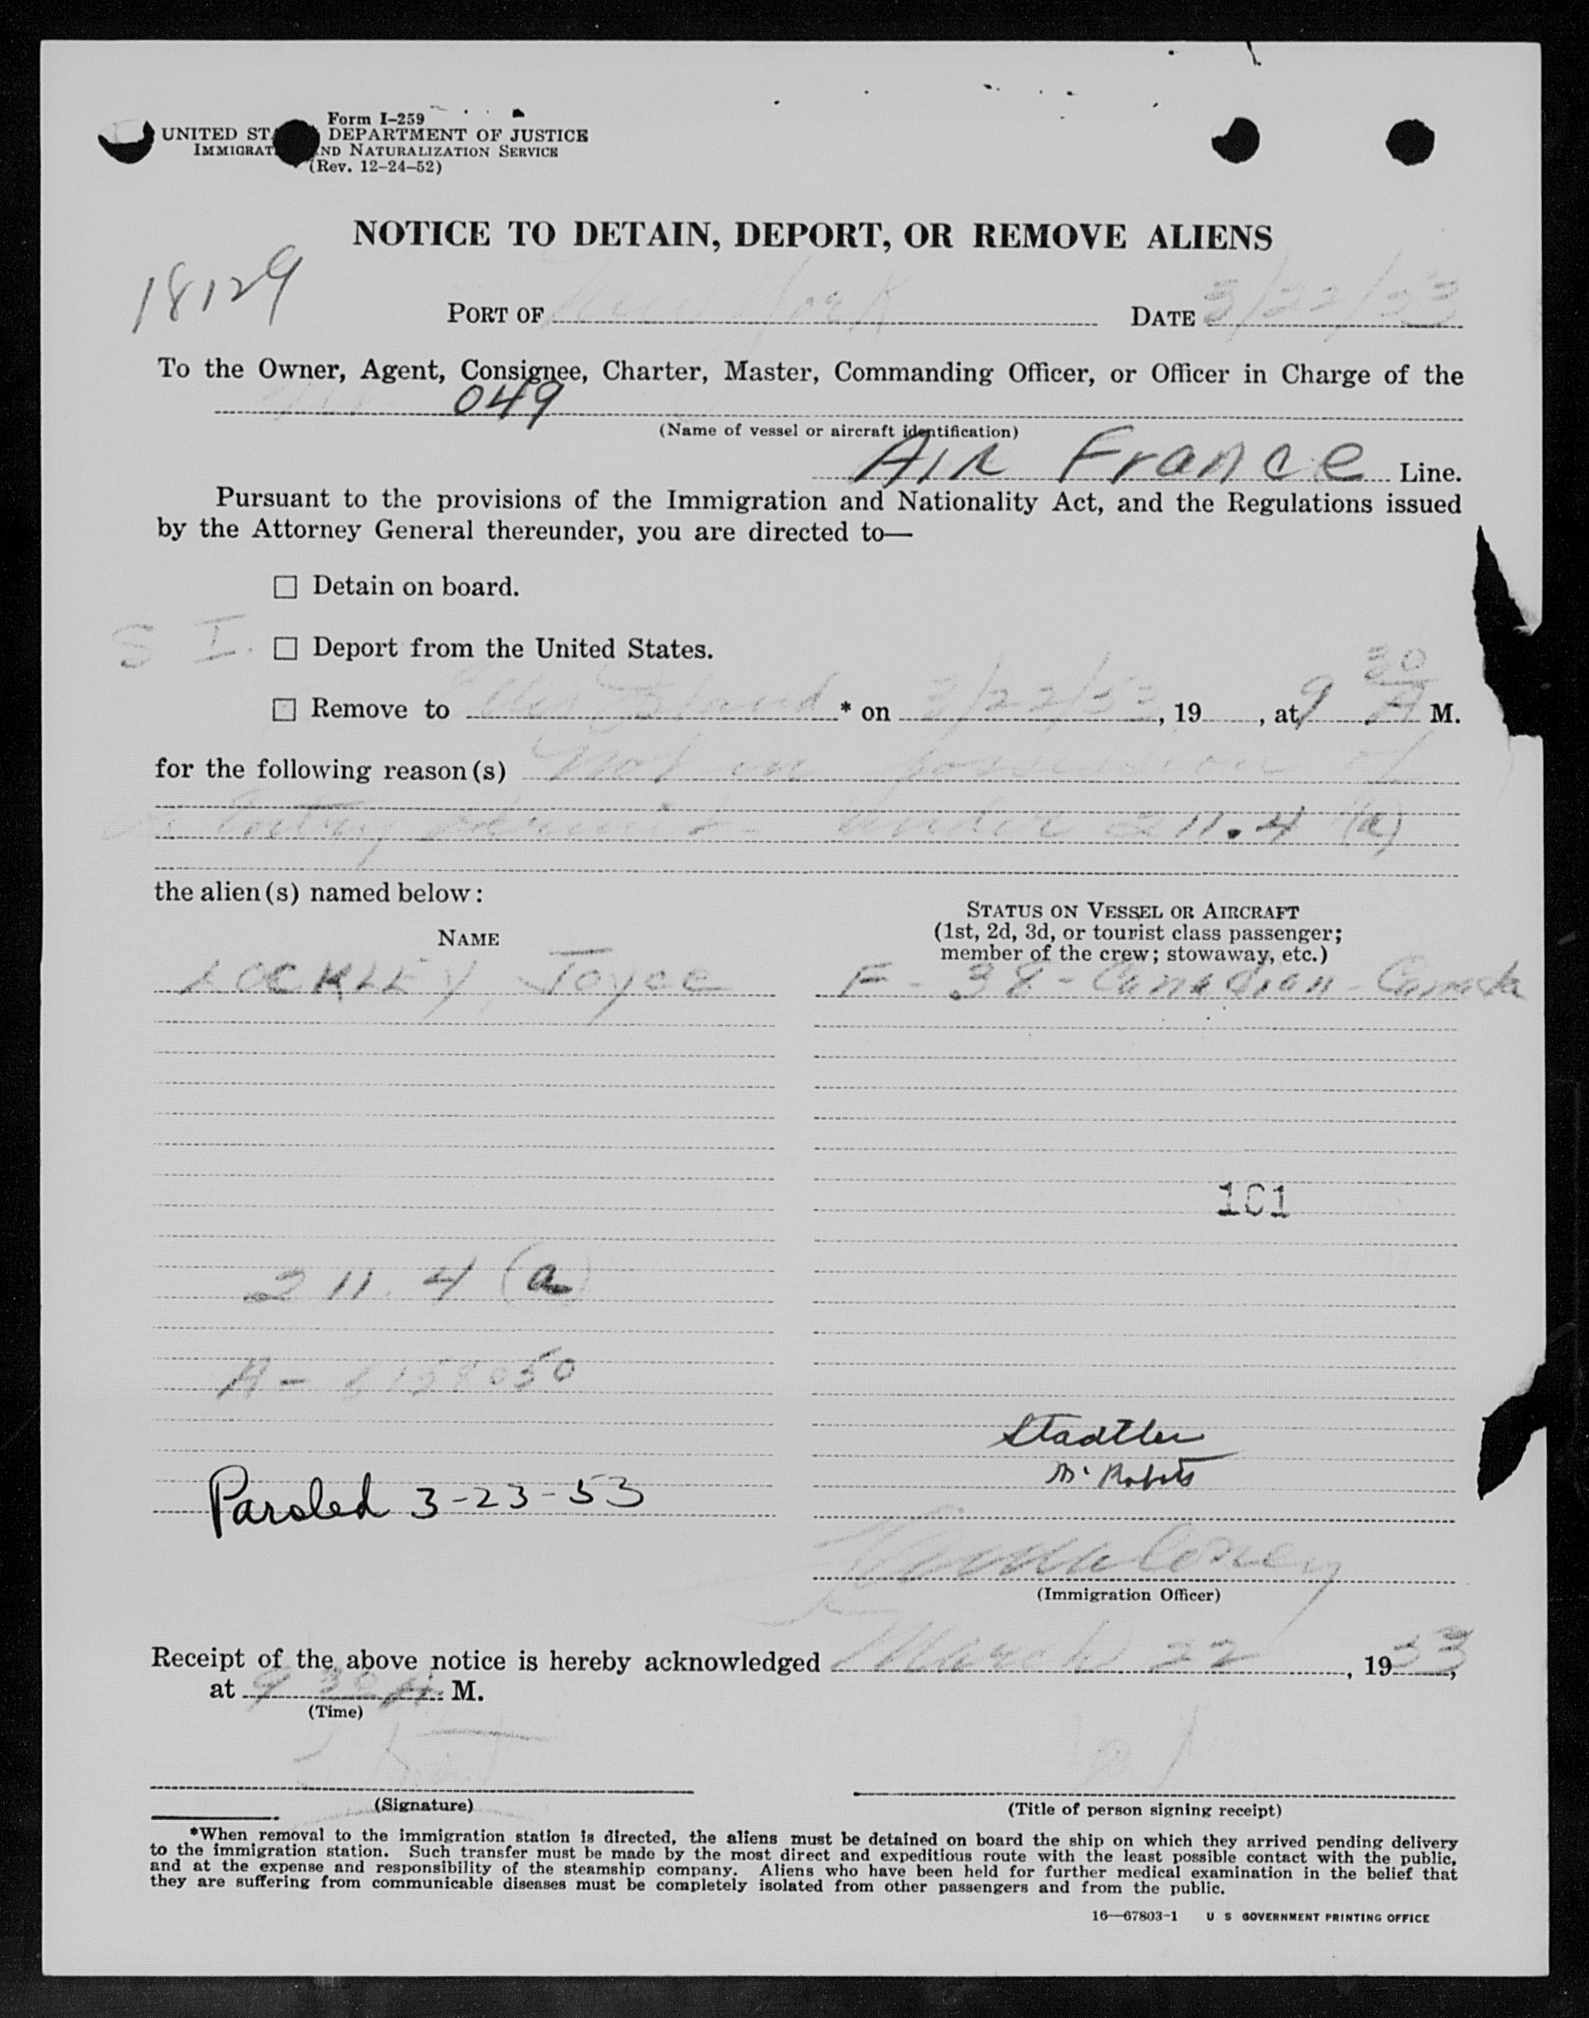 Form I-259
UNITED ST DEPARTMENT OF JUSTICE
IMMIGRAT ND NATURALIZATION SERVICE
(Rev. 12-24-52)
NOTICE TO DETAIN, DEPORT, OR REMOVE ALIENS
18129
PORT OF New York DATE 3/22/53
To the Owner, Agent, Consignee, Charter, Master, Commanding Officer, or Officer in Charge of the
049
(Name of vessel or aircraft identification)
AIR France Line.
Pursuant to the provisions of the Immigration and Nationality Act, and the Regulations issued
by the Attorney General thereunder, you are directed to—
☐ Detain on board.
S I. ☐ Deport from the United States.
☐ Remove to Ellis Island * on 3/22/53, 19 , at 9 30 A M.
for the following reason(s) Not in possession of
Entry Permit. Under 211.4 (a)
the alien(s) named below:
NAME
STATUS ON VESSEL OR AIRCRAFT
(1st, 2d, 3d, or tourist class passenger;
member of the crew; stowaway, etc.)
LOCKLEY, Joyce F - 38 - Canadian - Canada
101
211.4 (a)
A- 8158050
Stadtler
Paroled 3-23-53
(Immigration Officer)
Receipt of the above notice is hereby acknowledged March 22, 1953,
at 9 30 A. M.
(Time)
(Signature)
(Title of person signing receipt)
*When removal to the immigration station is directed, the aliens must be detained on board the ship on which they arrived pending delivery
to the immigration station. Such transfer must be made by the most direct and expeditious route with the least possible contact with the public,
and at the expense and responsibility of the steamship company. Aliens who have been held for further medical examination in the belief that
they are suffering from communicable diseases must be completely isolated from other passengers and from the public.
16—67803-1 U S GOVERNMENT PRINTING OFFICE